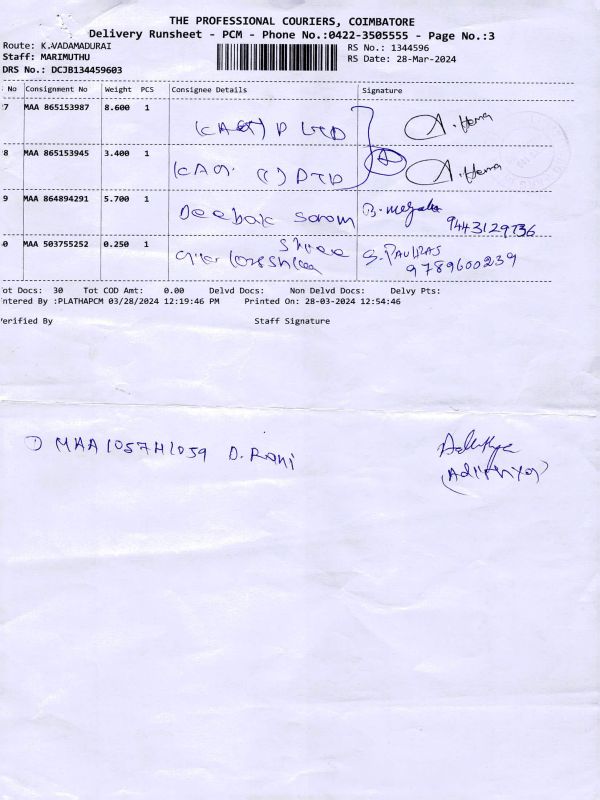 THE PROFESSIONAL COURIERS, COIMBATORE
Delivery Runsheet - PCM - Phone No.:0422-3505555 - Page No.:3
Route: K.VADAMADURAI
RS No.: 1344596
Staff: MARIMUTHU
RS Date: 28-Mar-2024
DRS No.: DCJB134459603
No Consignment No Weight PCS Consignee Details Signature
7 MAA 865153987 8.600 1 P LTD A. Hema
8 MAA 865153945 3.400 1 A. Hema
9 MAA 864894291 5.700 1 Deebak 9443129736
0 MAA 503755252 0.250 1 Shree 9789600239
ot Docs: 30 Tot COD Amt: 0.00 Delvd Docs: Non Delvd Docs: Delvy Pts:
ntered By :PLATHAPCM 03/28/2024 12:19:46 PM Printed On: 28-03-2024 12:54:46
erified By Staff Signature
D. Rani